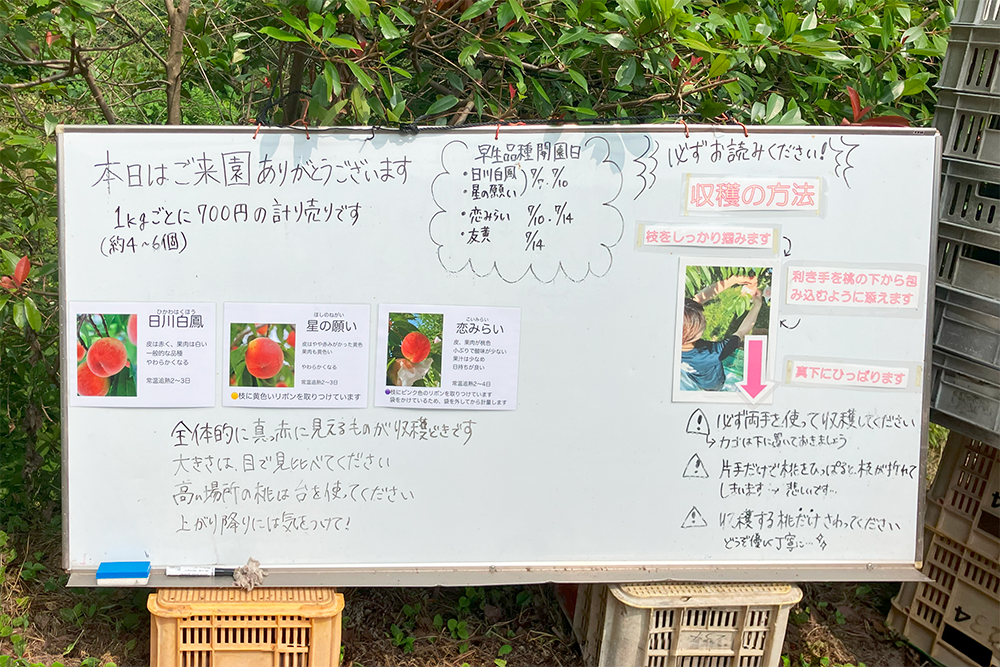 本日はご来園ありがとうございます
1kgごとに700円の計り売りです
(約4~6個)
早生品種開園日
・日川白鳳
・星の願い
7/7、7/10
・恋みらい 7/10、7/14
・友黄 7/14
必ずお読みください!
収穫の方法
枝をしっかり掴みます
利き手を桃の下から包
み込むように添えます
真下にひっぱります
ひかわはくほう
日川白鳳
皮は赤く、果肉は白い
一般的な品種
やわらかくなる
常温追熟2~3日
ほしのねがい
星の願い
皮はやや赤みがかった黄色
果肉も黄色い
やわらかくなる
常温追熟2~3日
枝に黄色いリボンを取りつけています
こいみらい
恋みらい
皮、果肉が桃色
小ぶりで酸味が少ない
果汁は少なめ
日持ちが良い
常温追熟2~4日
枝にピンク色のリボンを取りつけています
袋をかけているため、袋を外してから計量します
全体的に真っ赤に見えるものが収穫どきです
大きさは、目で見比べてください
高い場所の桃は台を使ってください
上がり降りには気をつけて!
必ず両手を使って収穫してください
→カゴは下に置いておきましょう
片手だけで桃をひっぱると、枝が折れて
しまいます→悲しいです…
収穫する桃だけさわってください
どうぞ優しく丁寧に…